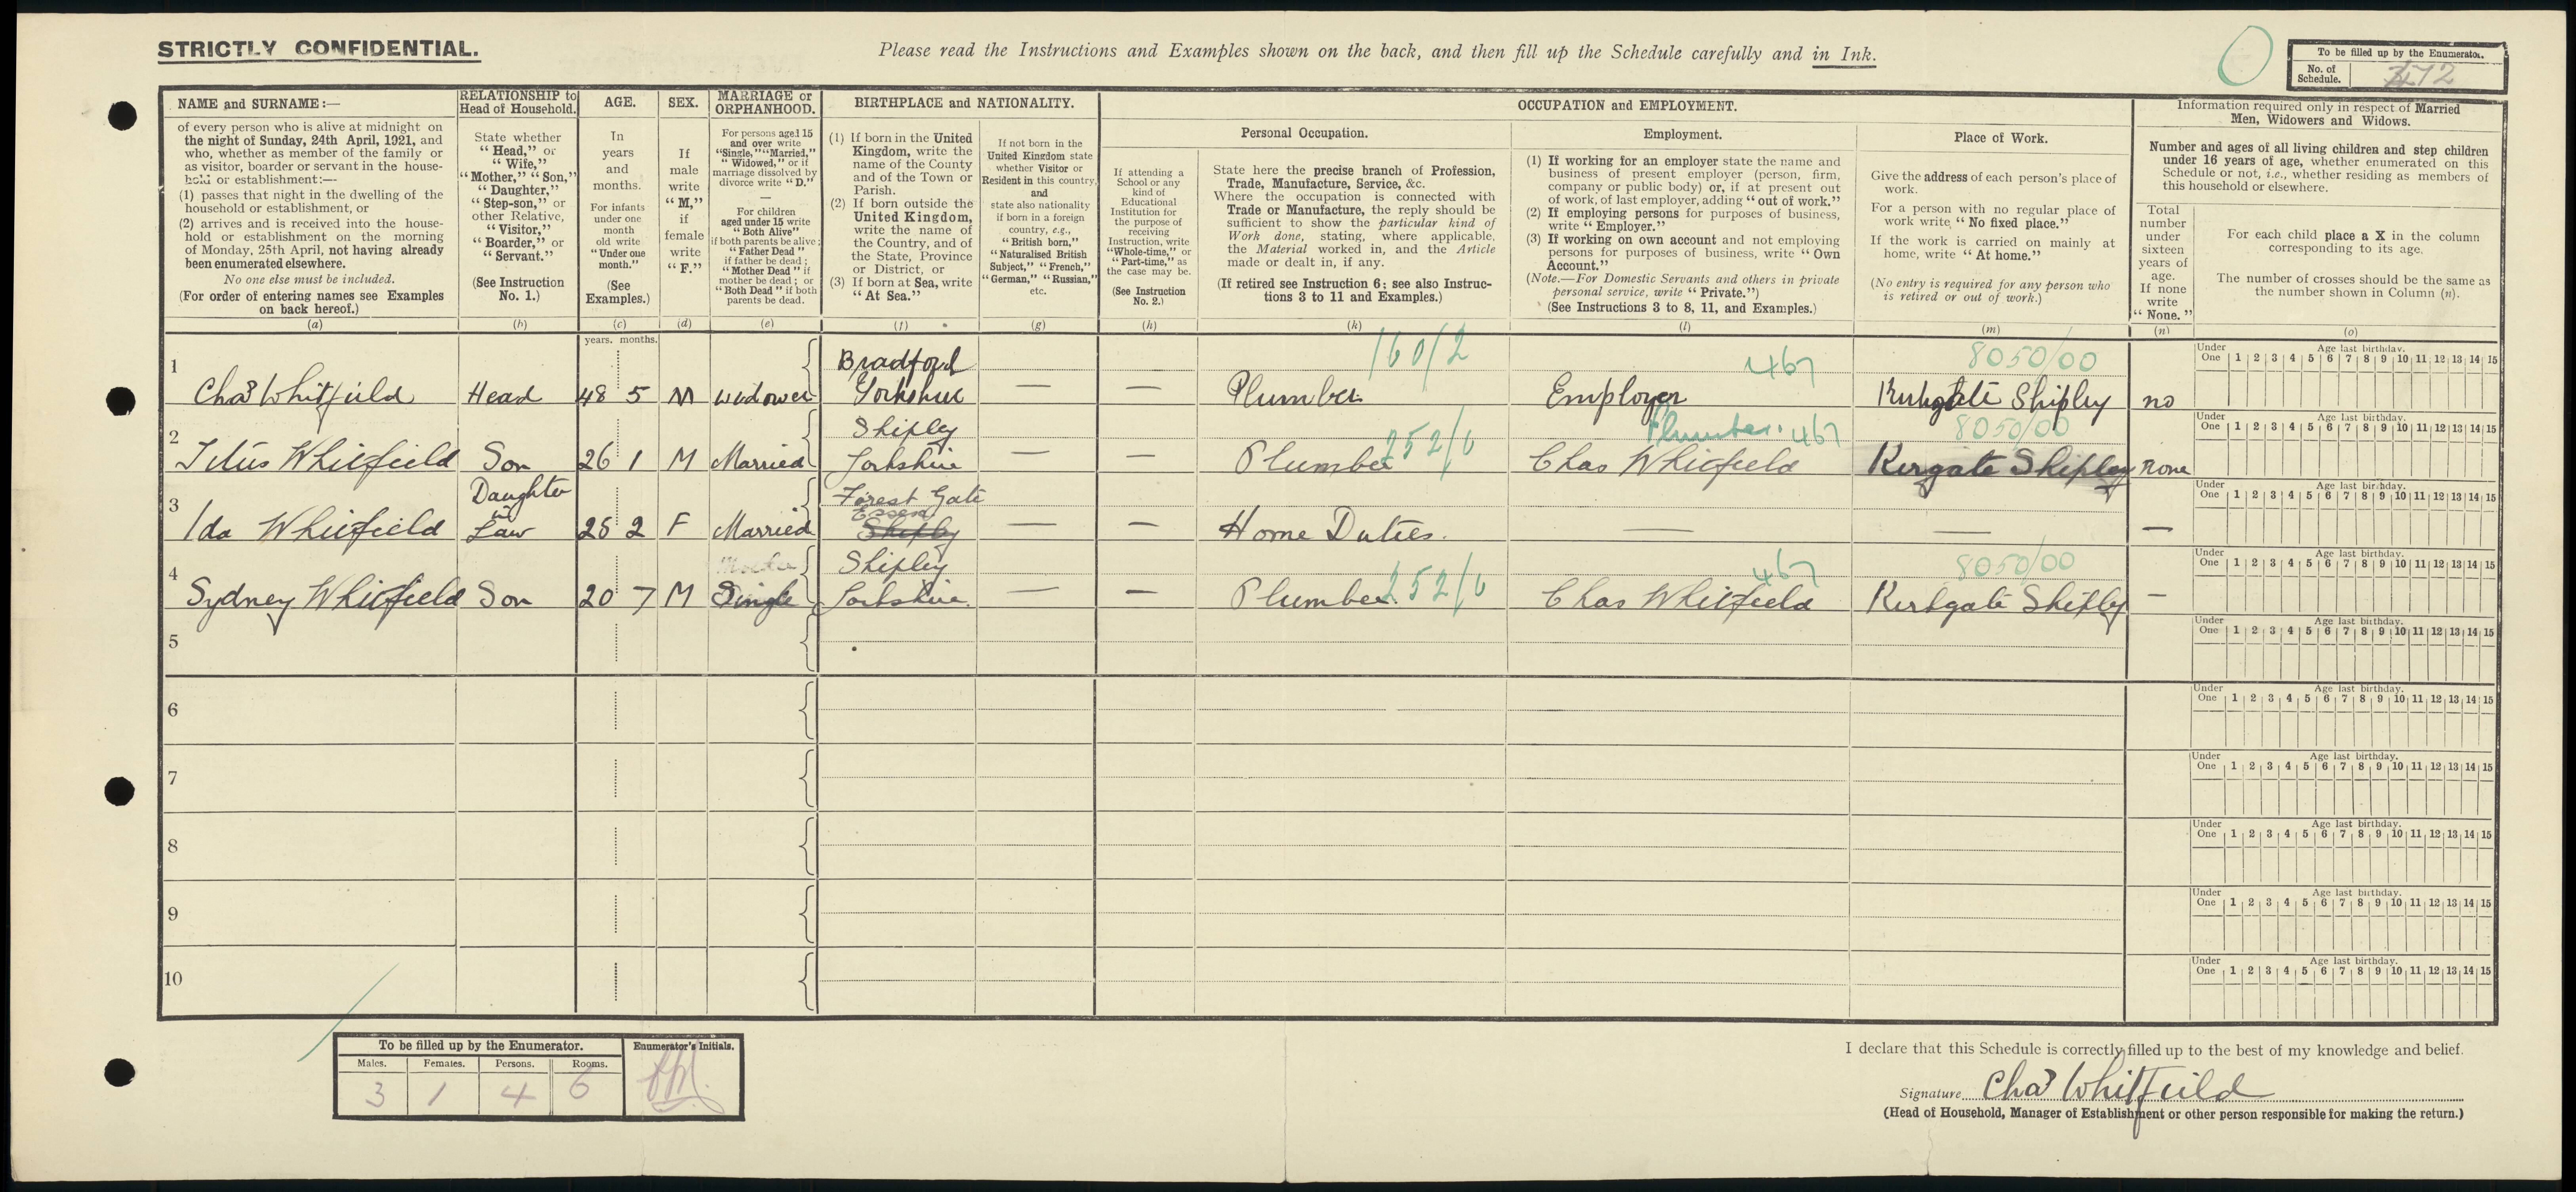 STRICTLY CONFIDENTIAL.
Please read the Instructions and Examples shown on the back, and then fill up the Schedule carefully and in Ink.
To be filled up by the Enumerator.
No. of Schedule.
NAME and SURNAME :—
of every person who is alive at midnight on
the night of Sunday, 24th April, 1921, and
who, whether as member of the family or
as visitor, boarder or servant in the house-
hold or establishment:—
(1) passes that night in the dwelling of the
household or establishment, or
(2) arrives and is received into the house-
hold or establishment on the morning
of Monday, 25th April, not having already
been enumerated elsewhere.
No one else must be included.
(For order of entering names see Examples
on back hereof.)
(a)
RELATIONSHIP to
Head of Household.
State whether
"Head," or
"Wife,"
"Mother," "Son,"
"Daughter,"
"Step-son," or
other Relative,
"Visitor,"
"Boarder," or
"Servant."
(See Instruction
No. 1.)
(b)
AGE.
In
years
and
months.
For infants
under one
month
old write
"Under one
month."
(See
Examples.)
(c)
SEX.
If
male
write
"M,"
if
female
write
"F."
(d)
MARRIAGE or
ORPHANHOOD.
For persons aged 15
and over write
"Single," "Married,"
"Widowed," or if
marriage dissolved by
divorce write "D."
—
For children
aged under 15 write
"Both Alive"
if both parents be alive;
"Father Dead"
if father be dead;
"Mother Dead" if
mother be dead; or
"Both Dead" if both
parents be dead.
(e)
BIRTHPLACE and NATIONALITY.
(1) If born in the United
Kingdom, write the
name of the County
and of the Town or
Parish.
(2) If born outside the
United Kingdom,
write the name of
the Country, and of
the State, Province
or District, or
(3) If born at Sea, write
"At Sea."
(f)
If not born in the
United Kingdom state
whether Visitor or
Resident in this country,
and
state also nationality
if born in a foreign
country, e.g.,
"British born,"
"Naturalised British
Subject," "French,"
"German," "Russian,"
etc.
(g)
OCCUPATION and EMPLOYMENT.
If attending a
School or any
kind of
Educational
Institution for
the purpose of
receiving
Instruction, write
"Whole-time," or
"Part-time," as
the case may be.
(See Instruction
No. 2.)
(h)
Personal Occupation.
State here the precise branch of Profession,
Trade, Manufacture, Service, &c.
Where the occupation is connected with
Trade or Manufacture, the reply should be
sufficient to show the particular kind of
Work done, stating, where applicable,
the Material worked in, and the Article
made or dealt in, if any.
(If retired see Instruction 6; see also Instruc-
tions 3 to 11 and Examples.)
(k)
Employment.
(1) If working for an employer state the name and
business of present employer (person, firm,
company or public body) or, if at present out
of work, of last employer, adding "out of work."
(2) If employing persons for purposes of business,
write "Employer."
(3) If working on own account and not employing
persons for purposes of business, write "Own
Account."
(Note.—For Domestic Servants and others in private
personal service, write "Private.")
(See Instructions 3 to 8, 11, and Examples.)
(l)
Place of Work.
Give the address of each person's place of
work.
For a person with no regular place of
work write "No fixed place."
If the work is carried on mainly at
home, write "At home."
(No entry is required for any person who
is retired or out of work.)
(m)
Information required only in respect of Married
Men, Widowers and Widows.
Number and ages of all living children and step children
under 16 years of age, whether enumerated on this
Schedule or not, i.e., whether residing as members of
this household or elsewhere.
Total
number
under
sixteen
years of
age.
If none
write
"None."
(n)
For each child place a X in the column
corresponding to its age.
The number of crosses should be the same as
the number shown in Column (n).
(o)
years. months.
Under One Age last birthday. 1 2 3 4 5 6 7 8 9 10 11 12 13 14 15
1 Chas Whitfield Head 48 5 M widower Bradford Yorkshire — — Plumber 160/2 Employer 467 8050/00 Kirkgate Shipley no
Under One Age last birthday. 1 2 3 4 5 6 7 8 9 10 11 12 13 14 15
2 Titus Whitfield Son 26 1 M Married Shipley Yorkshire — — Plumber 252/0 Chas Whitfield Plumber. 467 8050/00 Kirgate Shipley None
Under One Age last birthday. 1 2 3 4 5 6 7 8 9 10 11 12 13 14 15
3 Ida Whitfield Daughter in Law 28 2 F Married Forest Gate Essex Shipley — — Home Duties. — — —
Under One Age last birthday. 1 2 3 4 5 6 7 8 9 10 11 12 13 14 15
4 Sydney Whitfield Son 20 7 M Single Shipley Yorkshire. — — Plumber. 252/0 Chas Whitfield 467 8050/00 Kirkgate Shipley —
Under One Age last birthday. 1 2 3 4 5 6 7 8 9 10 11 12 13 14 15
5
Under One Age last birthday. 1 2 3 4 5 6 7 8 9 10 11 12 13 14 15
6
Under One Age last birthday. 1 2 3 4 5 6 7 8 9 10 11 12 13 14 15
7
Under One Age last birthday. 1 2 3 4 5 6 7 8 9 10 11 12 13 14 15
8
Under One Age last birthday. 1 2 3 4 5 6 7 8 9 10 11 12 13 14 15
9
Under One Age last birthday. 1 2 3 4 5 6 7 8 9 10 11 12 13 14 15
10
To be filled up by the Enumerator.
Males. Females. Persons. Rooms.
3 1 4 6
Enumerator's Initials.
I declare that this Schedule is correctly filled up to the best of my knowledge and belief.
Signature Chas Whitfield
(Head of Household, Manager of Establishment or other person responsible for making the return.)